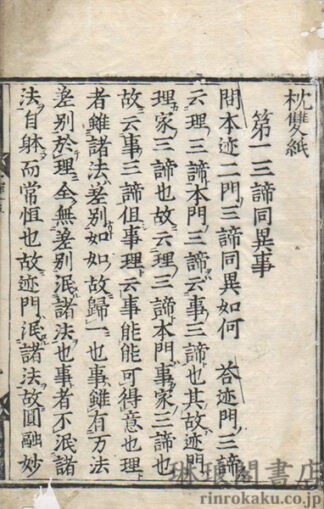 枕雙紙
第一三諦同異事
問本迹二門三諦同異如何 荅迹門三諦
云理三諦本門三諦云事三諦也其故迹門
理家三諦也故云理三諦本門事家三諦也
故云事三諦但事理云事能能可得意也理
者雖諸法差別如如故歸一也事雖有万法
差別於理全無差別泯諸法也事者不泯諸
法自躰而常恒也故迹門泯諸法故圓融妙
琳琅閣書店
rinrokaku.co.jp